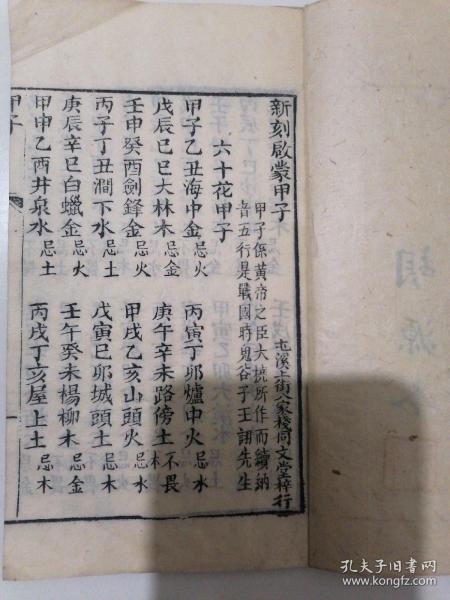 新刻啟蒙甲子
甲子係黃帝之臣大撓所作而續納
音五行是戰國時鬼谷子王詡先生
屯溪上街八家棧同文堂梓行
六十花甲子
甲子乙丑海中金忌火
丙寅丁卯爐中火忌水
戊辰己巳大林木忌金
庚午辛未路傍土不畏木
壬申癸酉劍鋒金忌火
甲戌乙亥山頭火忌水
丙子丁丑澗下水忌土
戊寅巳卯城頭土忌木
庚辰辛巳白蠟金忌火
壬午癸未楊柳木忌金
甲申乙酉井泉水忌土
丙戌丁亥屋上土忌木
甲子
孔夫子旧书网
www.kongfz.com